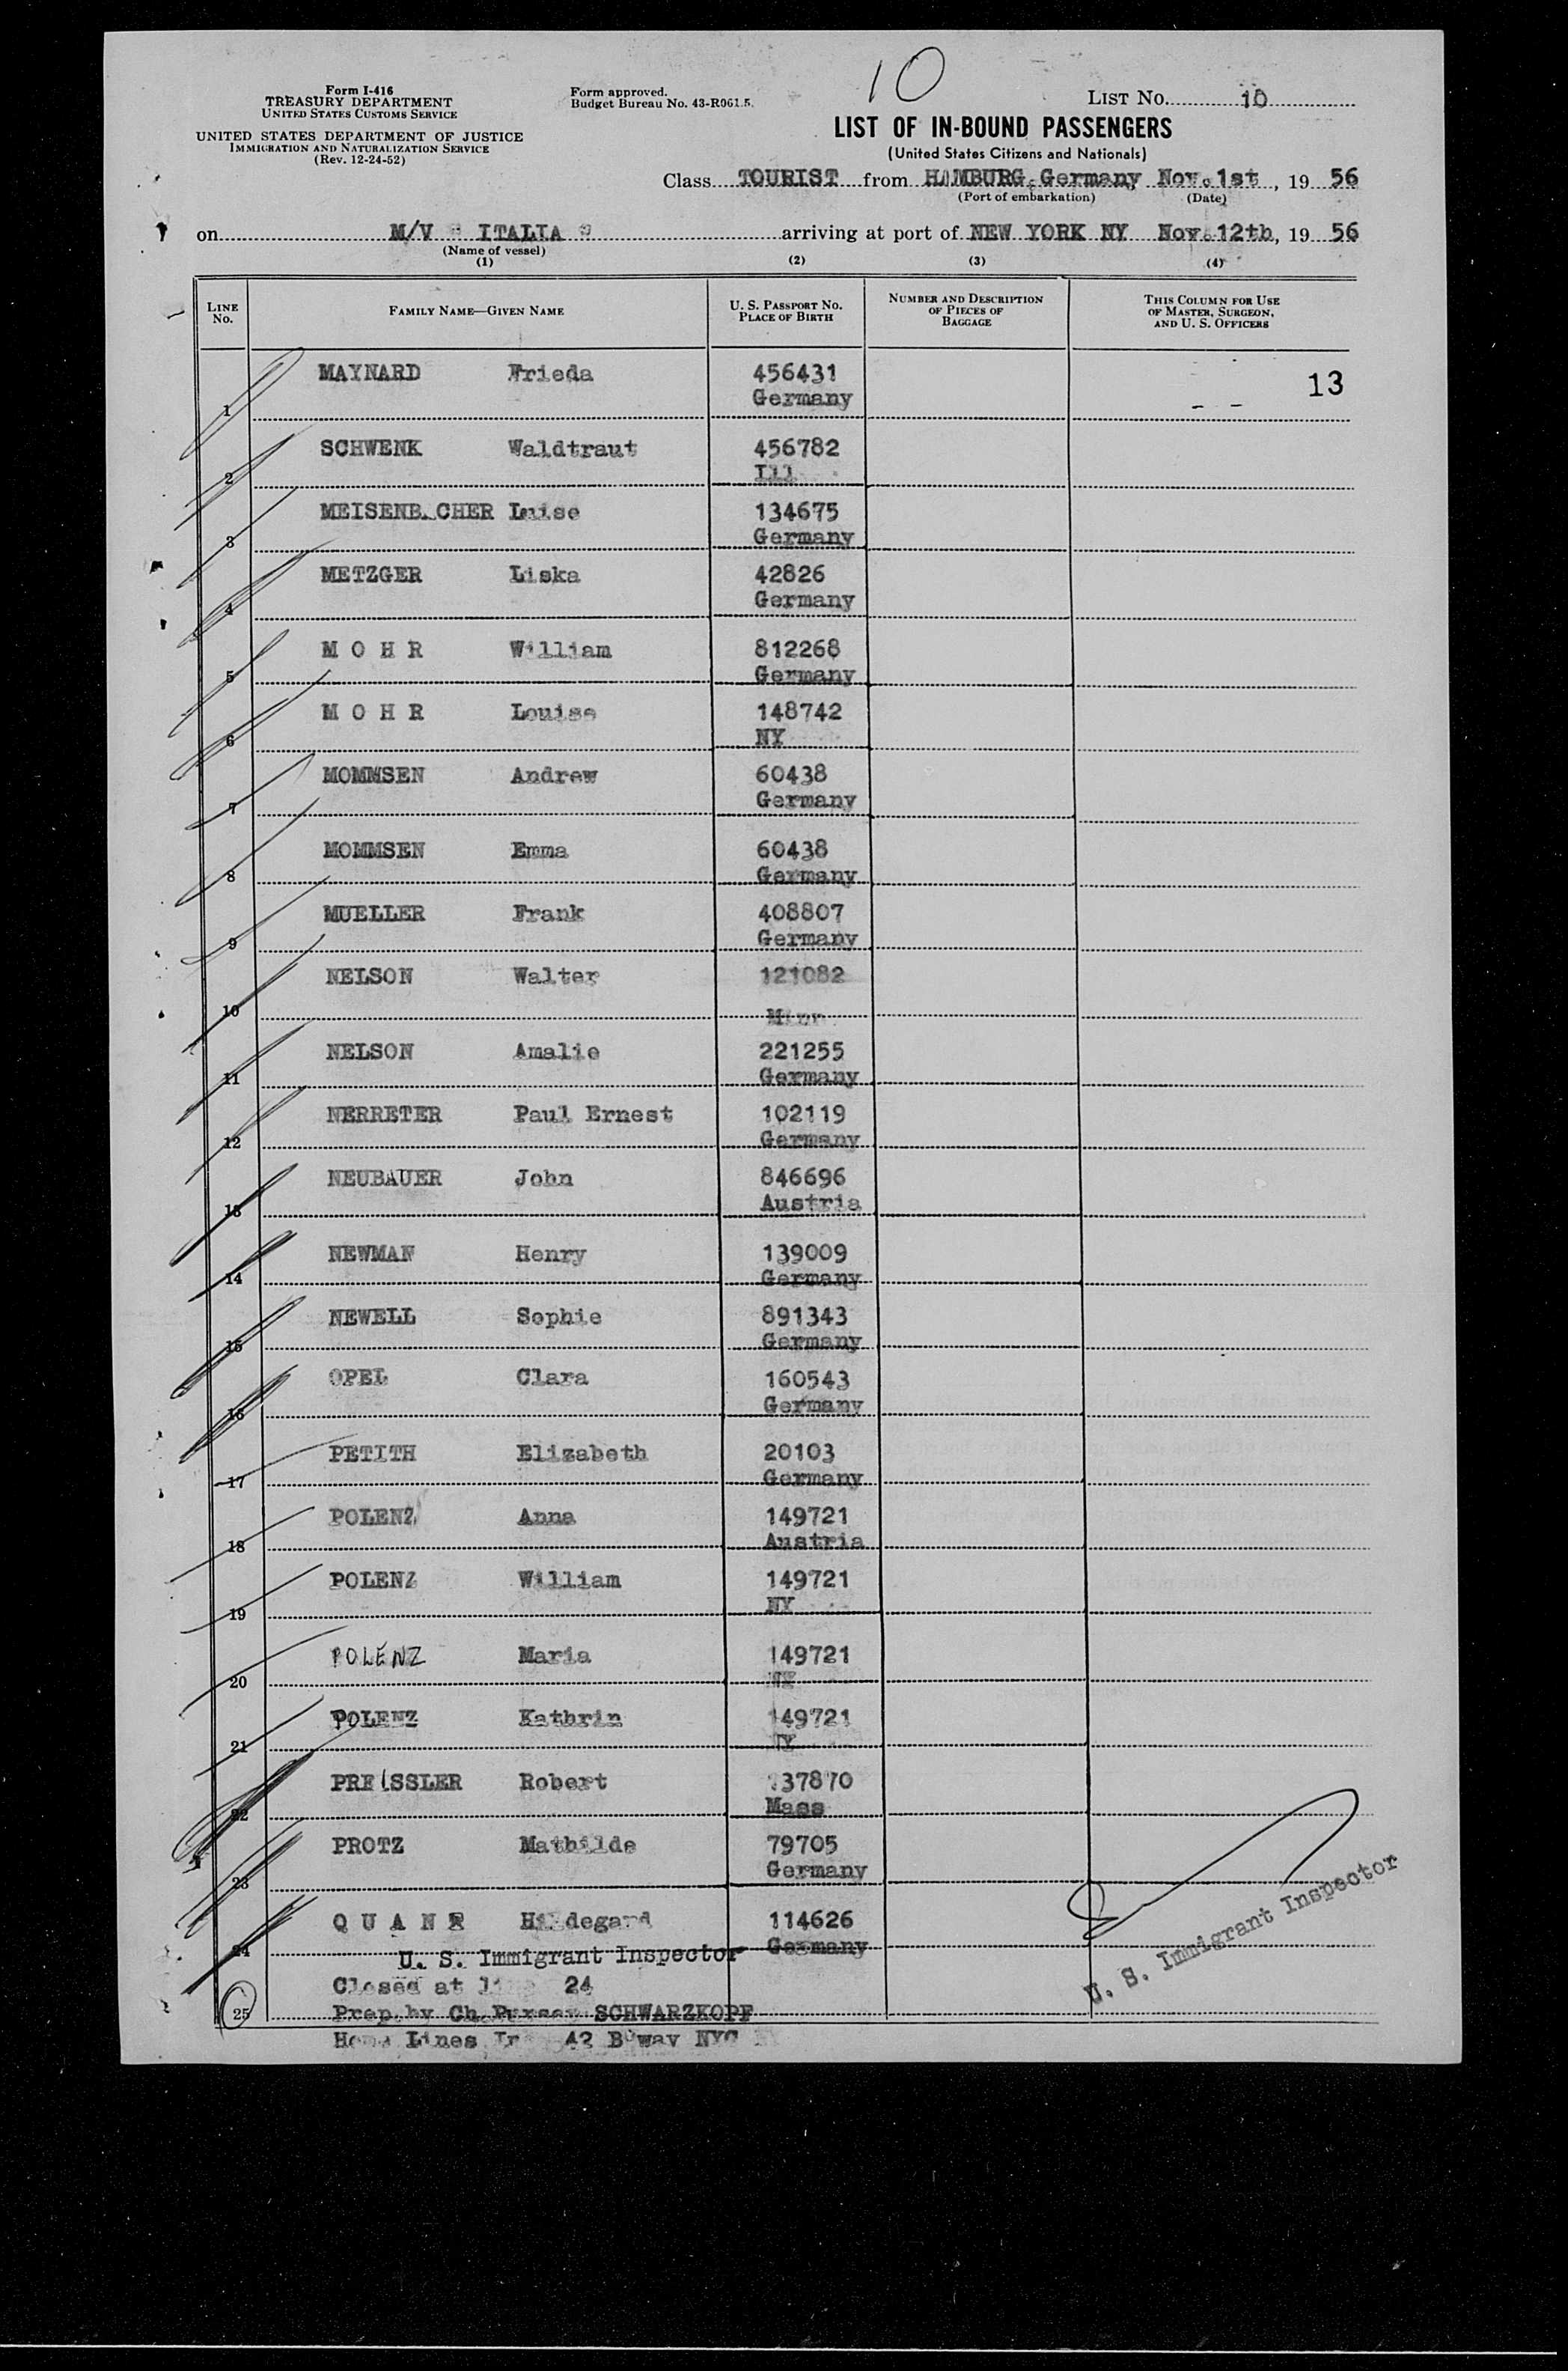 10
Form I-416
TREASURY DEPARTMENT
UNITED STATES CUSTOMS SERVICE
UNITED STATES DEPARTMENT OF JUSTICE
IMMIGRATION AND NATURALIZATION SERVICE
(Rev. 12-24-52)
Form approved.
Budget Bureau No. 43-R061.5.
LIST NO. 10
LIST OF IN-BOUND PASSENGERS
(United States Citizens and Nationals)
Class TOURIST from HAMBURG, Germany Nov. 1st, 19 56
(Port of embarkation) (Date)
on M/V " ITALIA " arriving at port of NEW YORK NY Nov. 12th, 19 56
(Name of vessel)
(1) (2) (3) (4)
LINE NO. FAMILY NAME—GIVEN NAME U. S. PASSPORT NO. PLACE OF BIRTH NUMBER AND DESCRIPTION OF PIECES OF BAGGAGE THIS COLUMN FOR USE OF MASTER, SURGEON, AND U. S. OFFICERS
1 MAYNARD Frieda 456431 13
Germany
2 SCHWENK Waldtraut 456782
Ill
3 MEISENB CHER Luise 134675
Germany
4 METZGER Liska 42826
Germany
5 M O H R William 812268
Germany
6 M O H R Louise 148742
NY
7 MOMMSEN Andrew 60438
Germany
8 MOMMSEN Emma 60438
Germany
9 MUELLER Frank 408807
Germany
10 NELSON Walter 121082
11 NELSON Amalie 221255
Germany
12 NERRETER Paul Ernest 102119
Germany
13 NEUBAUER John 846696
Austria
14 NEWMAN Henry 139009
Germany
15 NEWELL Sophie 891343
Germany
16 OPEL Clara 160543
Germany
17 PETITH Elizabeth 20103
Germany
18 POLENZ Anna 149721
Austria
19 POLENZ William 149721
NY
20 POLENZ Maria 149721
21 POLENZ Kathrin 149721
22 PREISSLER Robert 37870
Mass
23 PROTZ Mathilde 79705
Germany
24 Hildegard 114626
Germany
U. S. Immigrant Inspector
Closed at line 24
25 Prep.by Ch.Purser SCHWARZKOPF
Home Lines 42 B'way NYC
U. S. Immigrant Inspector